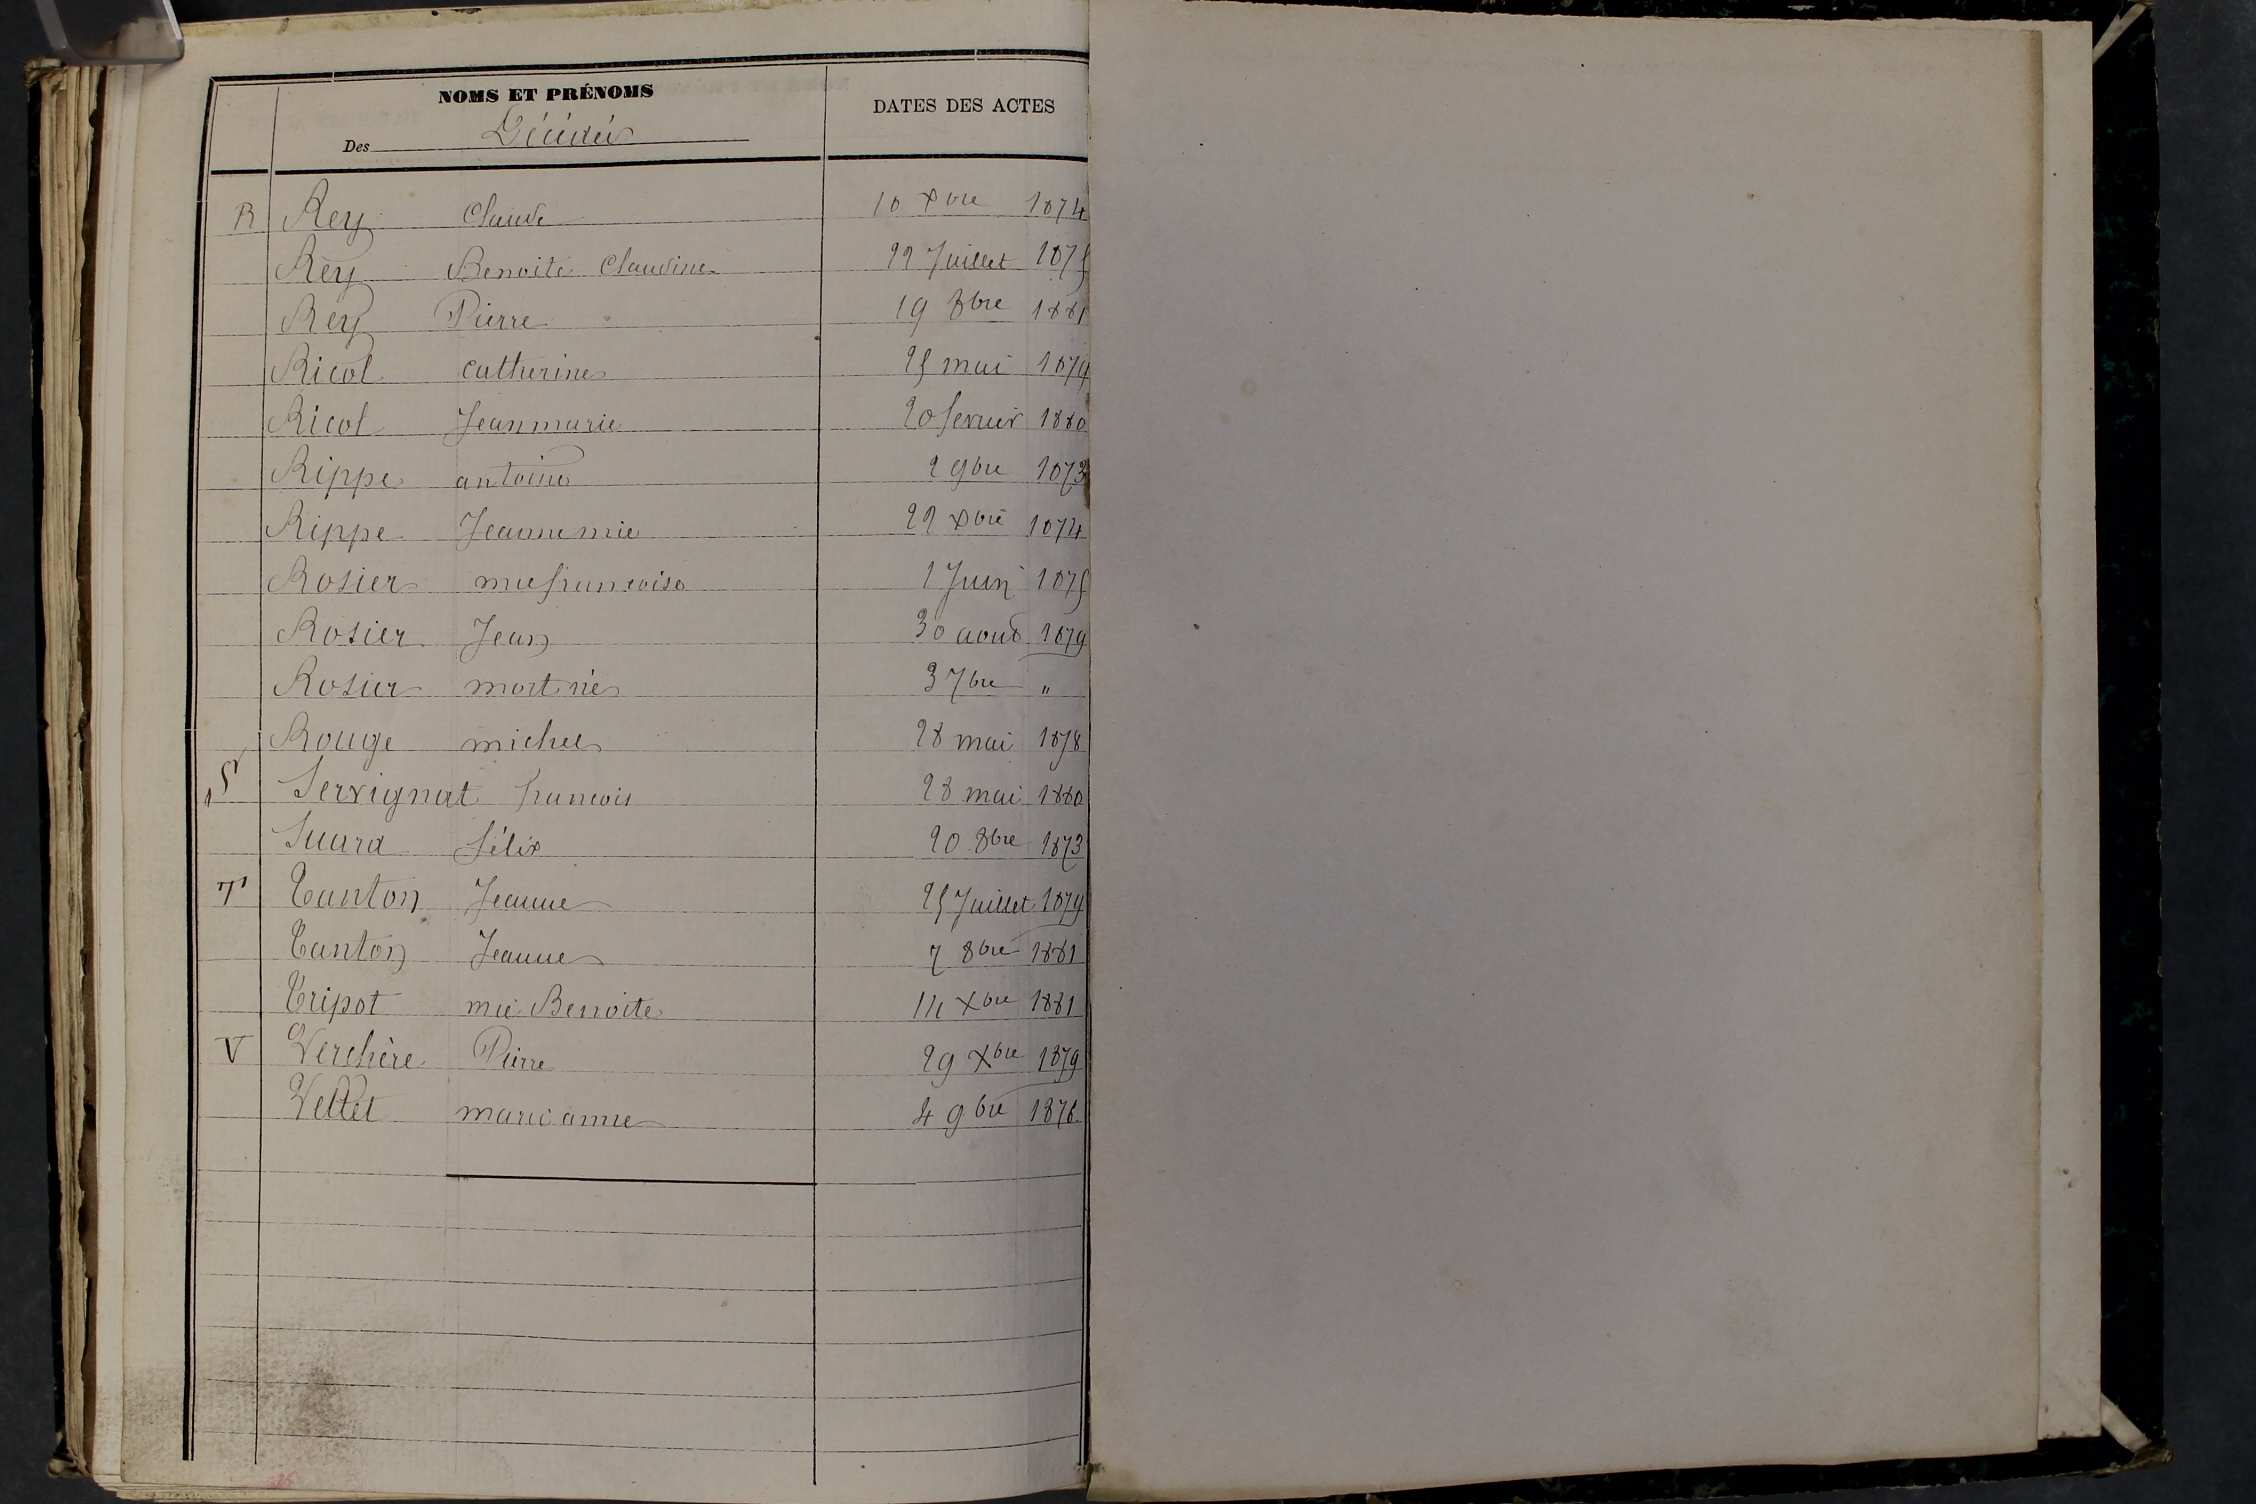 NOMS ET PRÉNOMS DATES DES ACTES
Des Décédés
R Rey Claude 10 Xbre 1874
Rey Benoite Claudine 22 Juillet 1875
Rey Pierre 19 8bre 1881
Ricol catherine 25 mai 1879
Ricol Jeanmarie 20 fevrier 1880
Rippe antoine 2 9bre 1873
Rippe Jeanne mie 22 Xbre 1874
Rosier mie francoise 1 Juin 1875
Rosier Jean 30 aout 1879
Rosier mort né 3 7bre "
Rouge michel 28 mai 1878
S Servignat francois 28 mai 1880
Suard félix 20 8bre 1873
T Tanton Jeanne 25 Juillet 1879
Tanton Jeanne 7 8bre 1881
Tripot mie Benoite 14 Xbre 1881
V Verchère Pierre 29 Xbre 1879
Vettet marie anne 4 9bre 1876